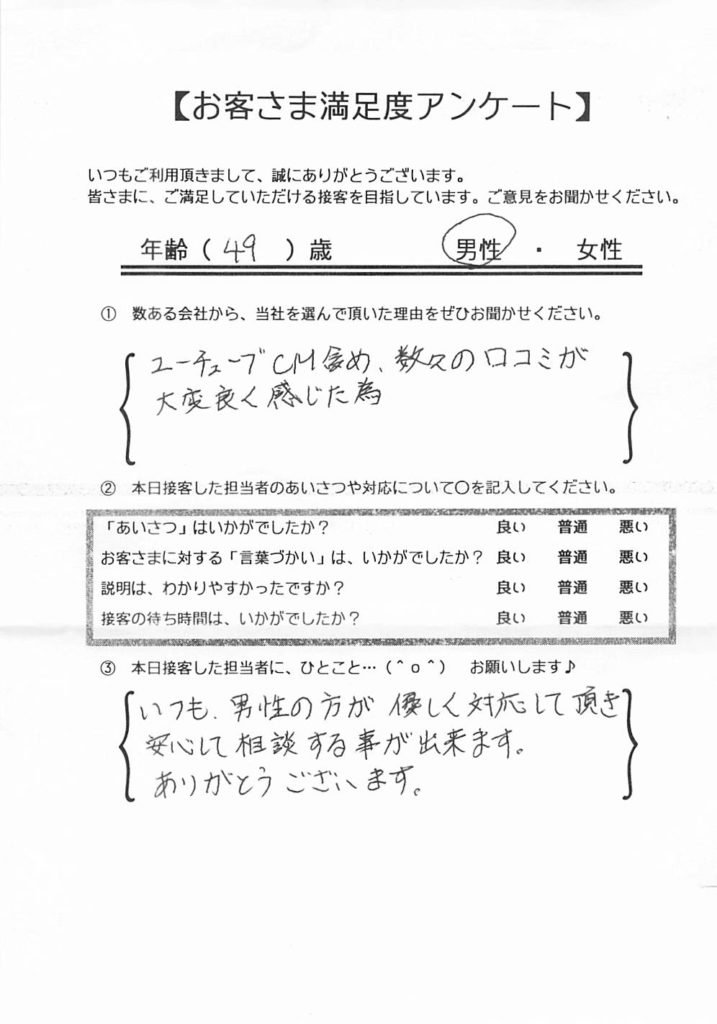 【お客さま満足度アンケート】
いつもご利用頂きまして、誠にありがとうございます。
皆さまに、ご満足していただける接客を目指しています。ご意見をお聞かせください。
年齢（ 49 ）歳 男性 ・ 女性
① 数ある会社から、当社を選んで頂いた理由をぜひお聞かせください。
ユーチューブCM含め、数々の口コミが
大変良く感じた為
② 本日接客した担当者のあいさつや対応について〇を記入してください。
「あいさつ」はいかがでしたか？ 良い 普通 悪い
お客さまに対する「言葉づかい」は、いかがでしたか？ 良い 普通 悪い
説明は、わかりやすかったですか？ 良い 普通 悪い
接客の待ち時間は、いかがでしたか？ 良い 普通 悪い
③ 本日接客した担当者に、ひとこと…（＾ｏ＾） お願いします♪
いつも、男性の方が優しく対応して頂き
安心して相談する事が出来ます。
ありがとうございます。